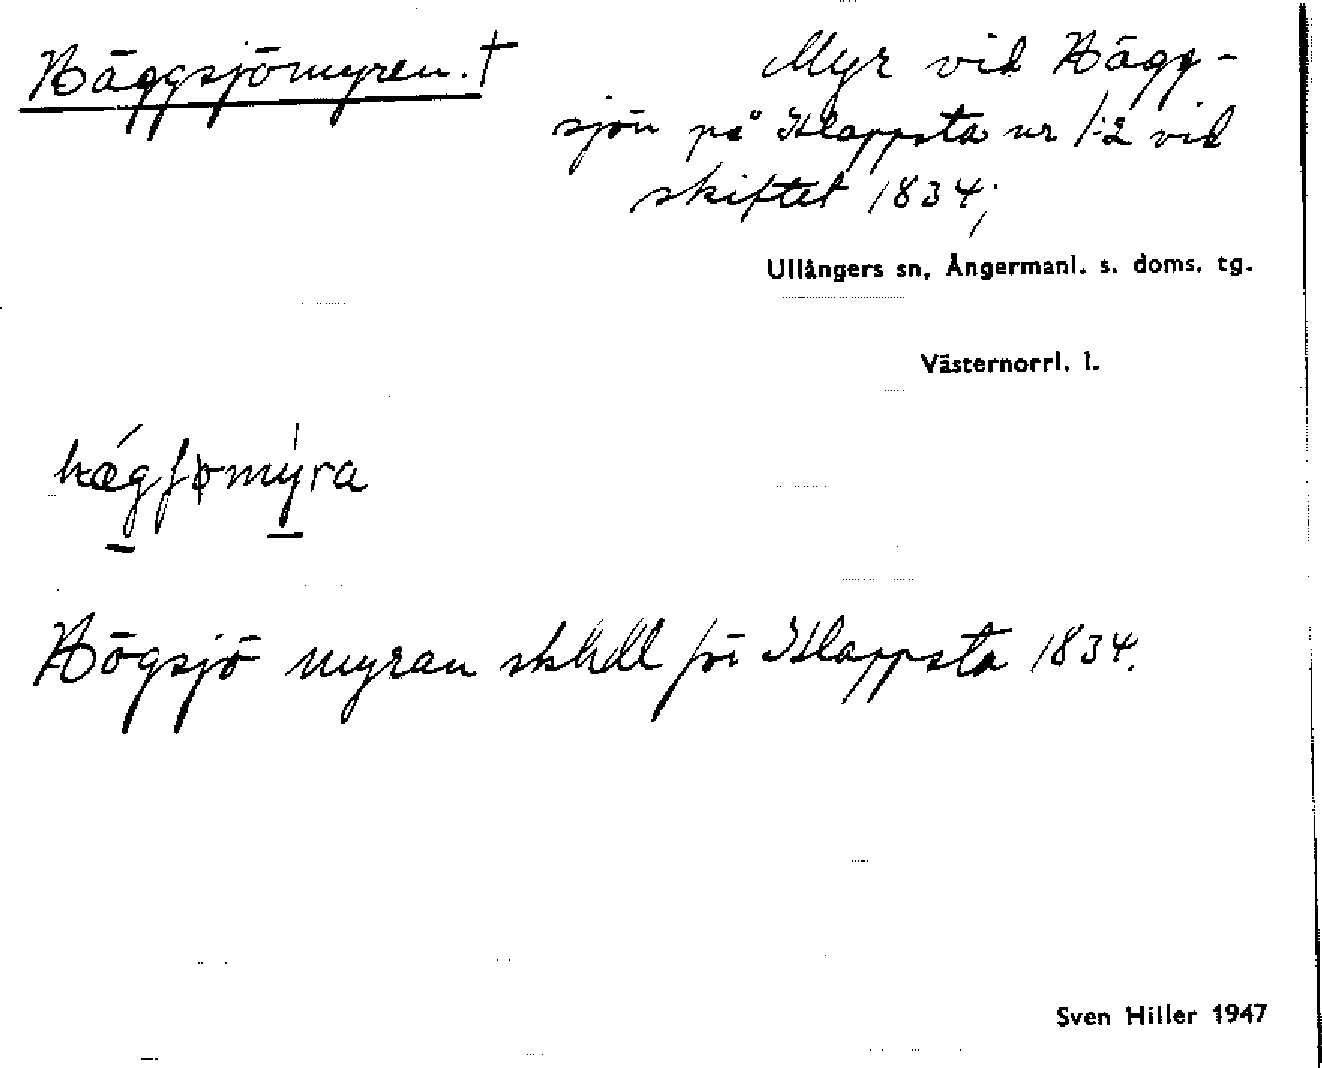 Häggsjömyren. †
Myr vid Hägg-
sjön på Klappsta nr 1:2 vid
skiftet 1834;
Ullångers sn, Ångermanl. s. doms. tg.
Västernorrl. l.
Högsjö myran skhdl för Klappsta 1834.
Sven Hiller 1947